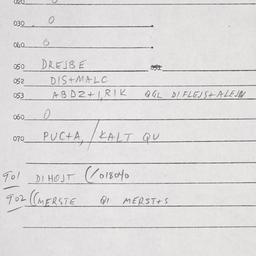 020 0
030 0
040 0
050 DREJBE
052 DIS+MALC
053 ABDZ+1,RIK QGL DIFLEJS+ALEJN
060 0
070 PUC+A, / KALT QU
901 DIHOJT (/018040
902 ((MERSTE QI MERST+S